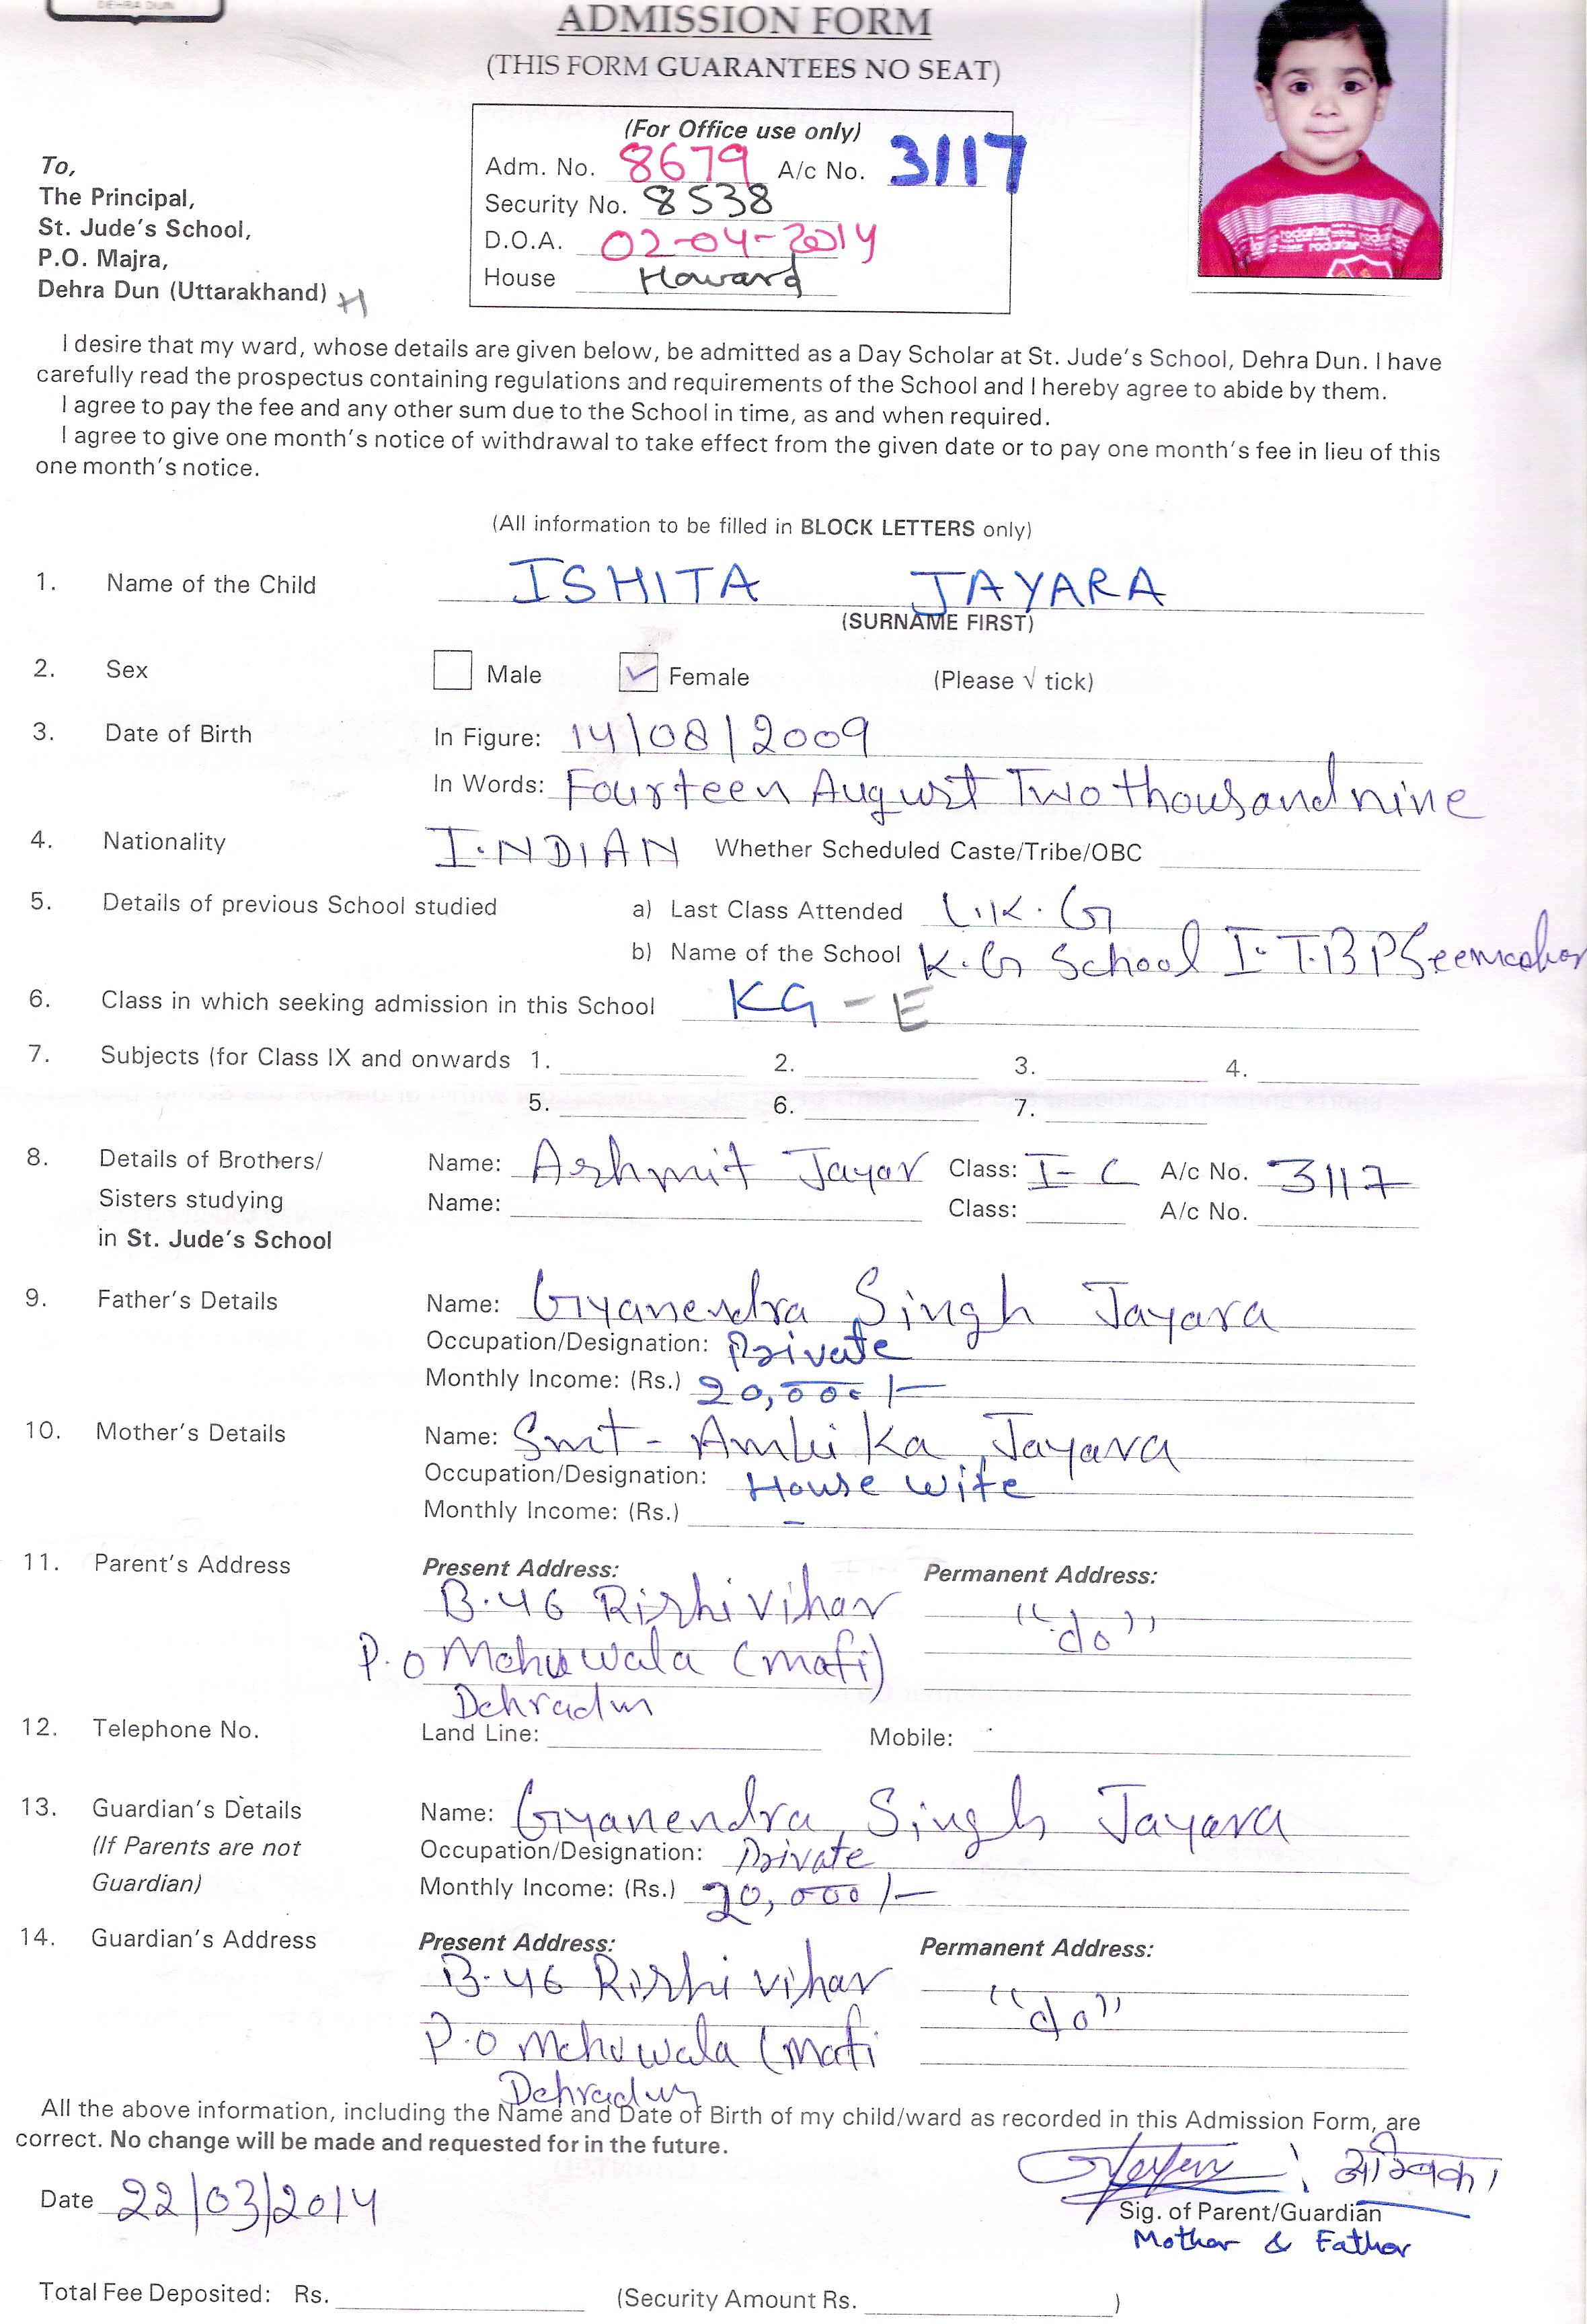 DEHRA DUN
ADMISSION FORM
(THIS FORM GUARANTEES NO SEAT)
(For Office use only)
Adm. No. 8679 A/c No. 3117
Security No. 8538
D.O.A. 02-04-2014
House Howard
To,
The Principal,
St. Jude's School,
P.O. Majra,
Dehra Dun (Uttarakhand) H
I desire that my ward, whose details are given below, be admitted as a Day Scholar at St. Jude's School, Dehra Dun. I have
carefully read the prospectus containing regulations and requirements of the School and I hereby agree to abide by them.
I agree to pay the fee and any other sum due to the School in time, as and when required.
I agree to give one month's notice of withdrawal to take effect from the given date or to pay one month's fee in lieu of this
one month's notice.
(All information to be filled in BLOCK LETTERS only)
1. Name of the Child ISHITA JAYARA
(SURNAME FIRST)
2. Sex Male ✓ Female (Please √ tick)
3. Date of Birth In Figure: 14/08/2009
In Words: Fourteen August Two thousand nine
4. Nationality I.NDIAN Whether Scheduled Caste/Tribe/OBC
5. Details of previous School studied a) Last Class Attended L.K.G
b) Name of the School K.G School I.T.B P
6. Class in which seeking admission in this School KG - E
7. Subjects (for Class IX and onwards 1. 2. 3. 4.
5. 6. 7.
8. Details of Brothers/ Name: Ashmit Jayar Class: I - C A/c No. 3117
Sisters studying Name: Class: A/c No.
in St. Jude's School
9. Father's Details Name: Gyanendra Singh Jayara
Occupation/Designation: Private
Monthly Income: (Rs.) 20,000/-
10. Mother's Details Name: Smt - Ambika Jayara
Occupation/Designation: House wife
Monthly Income: (Rs.) -
11. Parent's Address Present Address: Permanent Address:
B-46 Rishi vihar "do"
P.O Mehuwala (mafi)
Dehradun
12. Telephone No. Land Line: Mobile:
13. Guardian's Details Name: Gyanendra Singh Jayara
(If Parents are not Occupation/Designation: Private
Guardian) Monthly Income: (Rs.) 20,000/-
14. Guardian's Address Present Address: Permanent Address:
B-46 Rishi vihar "do"
P.O Mehuwala (mafi
Dehradun
All the above information, including the Name and Date of Birth of my child/ward as recorded in this Admission Form, are
correct. No change will be made and requested for in the future.
अम्बिका
Date 22/03/2014 Sig. of Parent/Guardian
Mother & Father
Total Fee Deposited: Rs. (Security Amount Rs. )